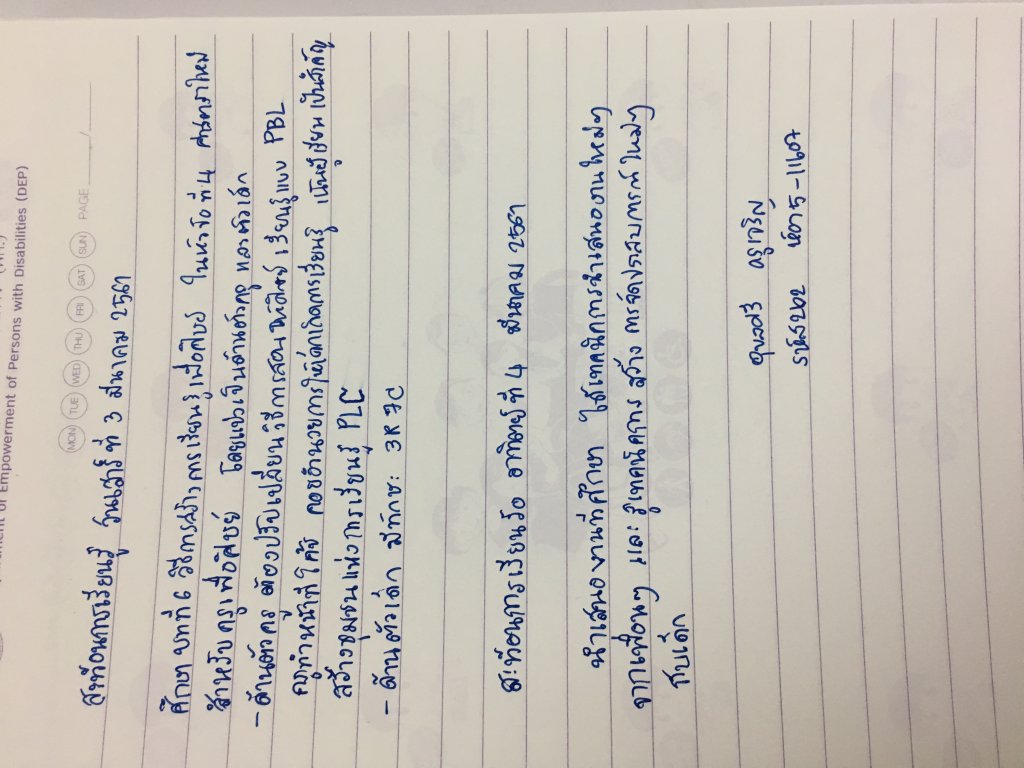 ment of Empowerment of Persons with Disabilities (DEP)
MON TUE WED THU FRI SAT SUN PAGE ____/____
สะท้อนการเรียนรู้ วันเสาร์ ที่ 3 มีนาคม 2561
ศึกษา บทที่ 6 วิธีการสร้างการเรียนรู้เพื่อศิษย์ ในหัวข้อที่ 4 ศาสตราใหม่
สำหรับครูเพื่อศิษย์ โดยแบ่งเป็นด้านตัวครู และตัวเด็ก
- ด้านตัวครู ต้องปรับเปลี่ยนวิธีการสอน ให้ศิษย์ เรียนรู้แบบ PBL
ครูทำหน้าที่โค้ช คอยอำนวยการให้เด็กเกิดการเรียนรู้ เน้นผู้เรียนเป็นสำคัญ
สร้างชุมชนแห่งการเรียนรู้ PLC
- ด้านตัวเด็ก มีทักษะ 3R 7C
สะท้อนการเรียนรู้ อาทิตย์ที่ 4 มีนาคม 2561
นำเสนองานที่ศึกษา ได้เทคนิคการนำเสนองานใหม่ๆ
จากเพื่อนๆ และรู้เทคนิคการสร้าง การจัดประสบการณ์ใหม่ๆ
กับเด็ก
ครูเจริญ